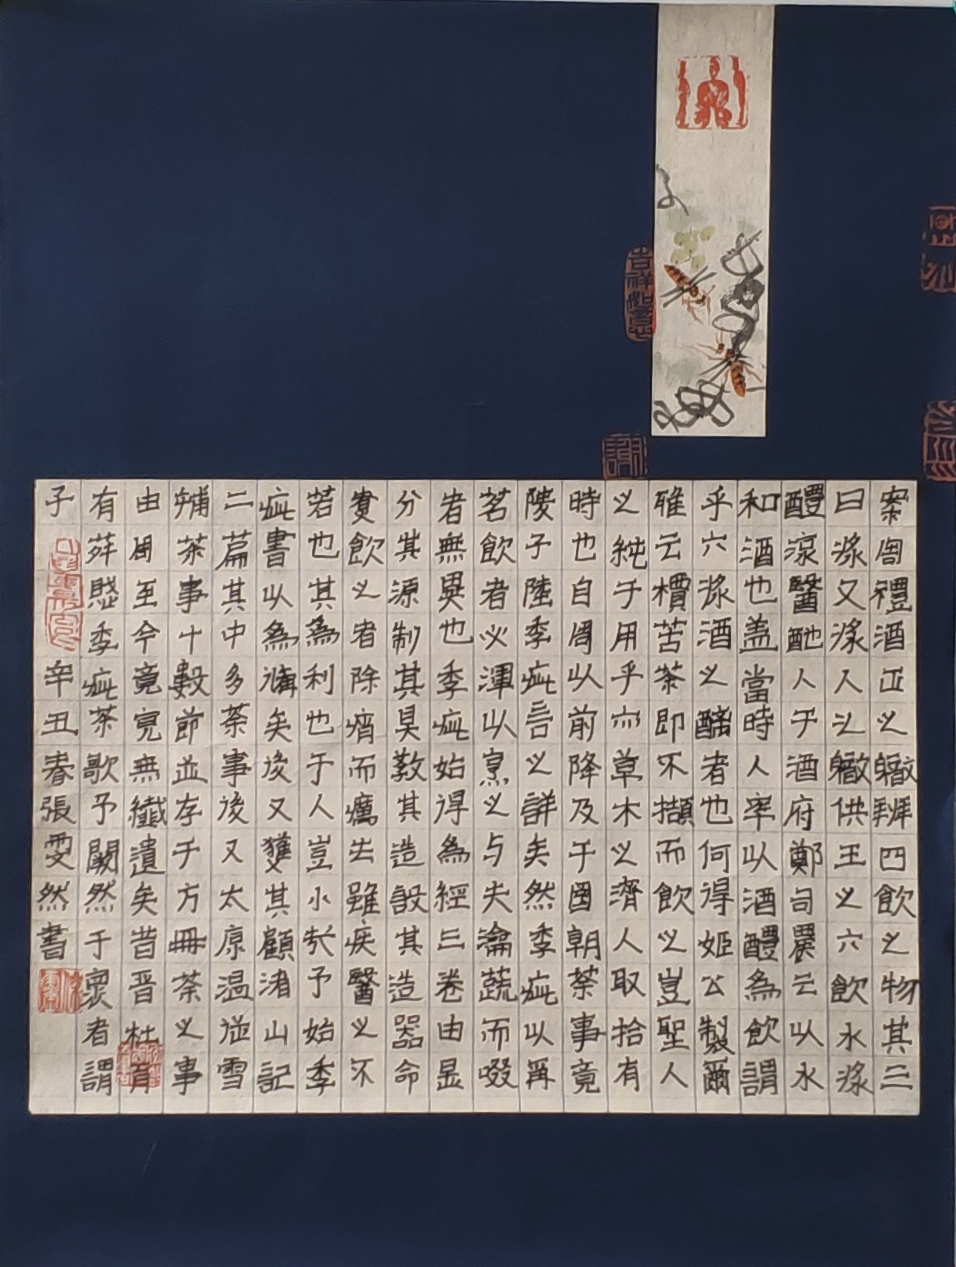 案周禮酒正之職辨四飲之物其三
曰漿又漿人之職供王之六飲水漿
醴涼醫酏入于酒府鄭司農云以水
和酒也盖當時人率以酒醴為飲謂
乎六漿酒之醨者也何得姬公製爾
雅云檟苦荼即不擷而飲之豈聖人
之純于用乎亦草木之濟人取捨有
時也自周以前降及于國朝茶事竟
陵子陸季疵言之詳矣然季疵以前
茗飲者必渾以烹之与夫瀹蔬而啜
者無異也季疵始得為經三卷由是
分其源制其具教其造設其造器命
煑飲之者除痟而癘去雖疾醫之不
若也其為利也于人豈小哉予始季
疵書以為備矣後又獲其顧渚山記
二篇其中多茶事後又太原温從雪
補茶事十數節並存于方冊茶之事
由周至今竟竟無纖遺矣昔晋杜育
有荈賦季疵茶歌予闕然于懷者謂
子
辛丑春張雯然書
吉祥
謝